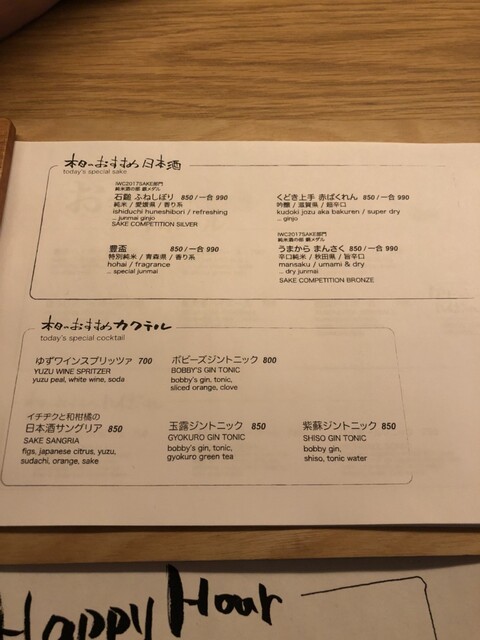 本日のおすすめ日本酒
today's special sake
IWC2017SAKE部門
純米酒の部 銀メダル
石鎚 ふねしぼり 850 / 一合 990
純米 / 愛媛県 / 香り系
ishiduchi huneshibori / refreshing
... junmai ginjo
SAKE COMPETITION SILVER
くどき上手 赤ばくれん 850 / 一合 990
吟醸 / 滋賀県 / 超辛口
kudoki jozu aka bakuren / super dry
... ginjo
豊盃 850 / 一合 990
特別純米 / 青森県 / 香り系
hohai / fragrance
... special junmai
IWC2017SAKE部門
純米酒の部 銅メダル
うまから まんさく 850 / 一合 990
辛口純米 / 秋田県 / 旨辛口
mansaku / umami & dry
... dry junmai
SAKE COMPETITION BRONZE
本日のおすすめカクテル
today's special cocktail
ゆずワインスプリッツァ 700
YUZU WINE SPRITZER
yuzu peal, white wine, soda
ボビーズジントニック 800
BOBBY'S GIN TONIC
bobby's gin, tonic,
sliced orange, clove
イチヂクと和柑橘の
日本酒サングリア 850
SAKE SANGRIA
figs, japanese citrus, yuzu,
sudachi, orange, sake
玉露ジントニック 850
GYOKURO GIN TONIC
bobby's gin, tonic,
gyokuro green tea
紫蘇ジントニック 850
SHISO GIN TONIC
bobby gin,
shiso, tonic water
Happy Hour